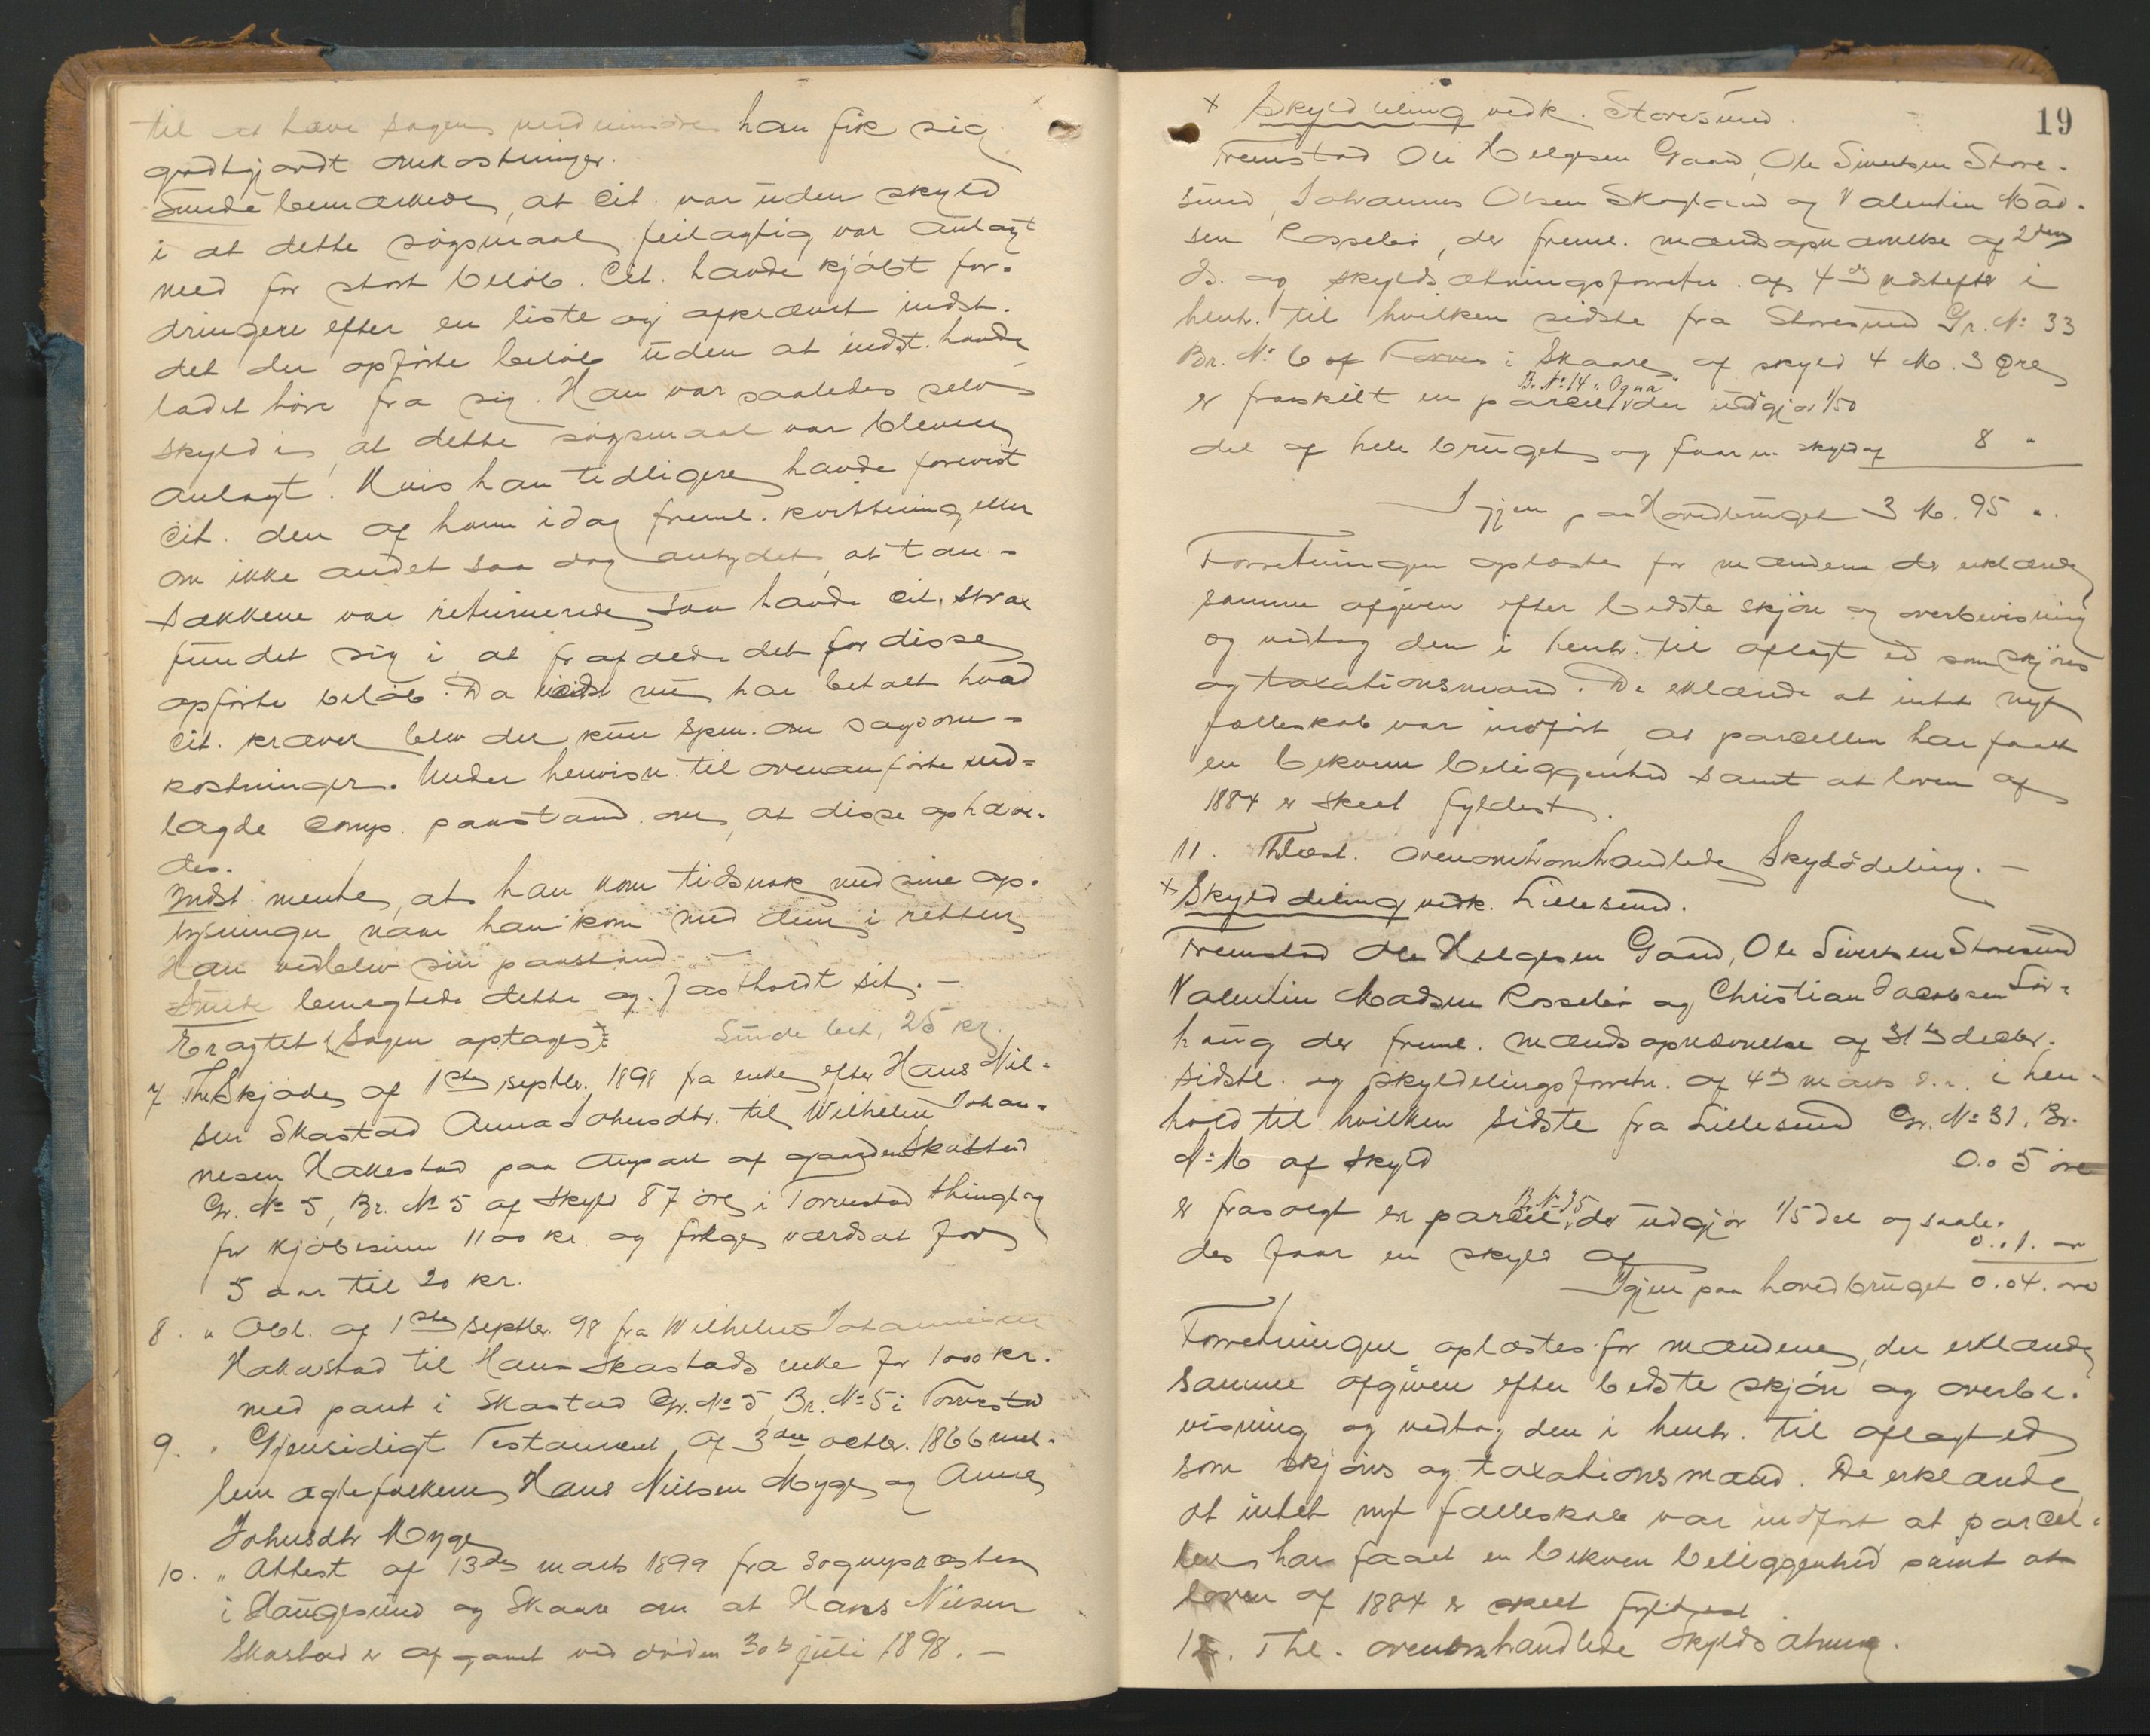 til at hæve sagen medmindre han fik sig
godtgjordt omkostninger.
Sunde bemærkede, at Cit. var uden skyld
i at dette søgsmaal feilagtig var anlagt
med for stort beløb. Cit. havde kjøbt for-
dringen efter en liste og afkrævet indst.
det der opførte beløb uden at indst. havde
ladet høre fra sig. Han var saaledes selv
skyld i, at dette søgsmaal var bleven
anlagt. Hvis han tidligere havde forevist
Cit. den af ham idag freml. kvittering eller
om ikke andet saa dog antydet, at tau-
sækkene var returnerede saa havde Cit. strax
fundet sig i at frafalde det for disse
opførte beløb. Da indst nu har betalt hvad
Cit. kræver blev der kun spm. om sagsom-
kostninger. Under henvisn. til ovenanførte ned-
lagde comp. paastand om, at disse ophæve-
des.
Indst. mente, at han kom tidsnok med sine op-
lysninger naar han kom med dem i retten
Han vedblev sin paastand. —
Sunde benegtede dette og fastholdt sit. —
Eragtet: Sagen optages. Sunde bet. 25 kr.
7 Thl. Skjøde af 1ste septbr. 1898 fra enke efter Hans Nil-
sen Skastad Anna Johnsdtr. til Wilhelm Johan-
nesen Hakestad paa Anpart af gaarden Skastad
Gr. No 5, Br. No 5 af Skyld 87 øre i Torvestad thinglag
for kjøbesum 1100 kr. og følge værdsat for
5 aar til 20 kr.
8. " Obl. af 1ste septbr. 98 fra Wilhelm Johannesen
Hakestad til Hans Skastads enke for 1000 kr.
med pant i Skastad Gr. No 5, Br. No 5 i Torvestad
9. " Gjensidigt Testament af 3die octbr. 1866 mel-
lem ægtefolkene Hans Nilsen Myge og Anna
Johnsdtr Myge
10. " Attest af 13de marts 1899 fra sognepræsten
i Haugesund og Skaare om at Hans Nilsen
Skastad er afgaaet ved døden 30te juli 1898. —
19
x Skylddeling vedk. Storesund.
Fremstod Ole Helgesen Gaard, Ole Sivertsen Store-
sund, Johannes Olsen Skogland og Valentin Mad-
sen Rossebø, der freml. mandsopnævnelse af 2den
ds. og skyldsætningsforretn. af 4de næstefter i
henh. til hvilken sidste fra Storesund Gr. No 33
Br. No 6 af Torves i Skaare af skyld 4 M. 3 Øre
B. No 14 "Ogna"
er fraskilt en parcel, der udgjør 1/50
del af hele bruget og faar en skyld af 8 "
Igjen paa Hovedbruget 3 M. 95 ".
Forretningen oplæstes for mændene der erklærede
samme afgiven efter bedste skjøn og overbevisning
og vedtog den i henh. til aflagt ed som skjøns
og taxationsmænd. De erklærede at intet nyt
fælleskab var indført, at parcellen har faaet
en bekvem beliggenhed samt at loven af
1884 er skeet fyldest.
11. Thlæst. ovenomhandlede Skylddeling. —
x Skylddeling vedk. Lillesund.
Fremstod Ole Helgesen Gaard, Ole Sivertsen Storesund
Valentin Madsen Rossebø og Christian Jacobsen Sør-
haug der freml. mandsopnævnelse af 31te decbr.
sidstl. og skylddelingsforretn. af 4de marts d.a. i hen-
hold til hvilken sidste fra Lillesund Gr. No 31. Br.
No 16 af skyld 0.05 øre
B. No 35
er frasolgt en parcel, der udgjør 1/5 del og saale-
des faar en skyld af 0.01. øre
Igjen paa hovedbruget 0.04. øre
Forretningen oplæstes for mændene, der erklærede
samme afgiven efter bedste skjøn og overbe-
visning og vedtog den i henh. til aflagt ed
som skjøns og taxationsmænd. De erklærede
at intet nyt fælleskab var indført at parcel-
len har faaet en bekvem beliggenhed samt at
loven af 1884 er skeet fyldest.
12. Thl. ovenomhandlede Skyldsætning.